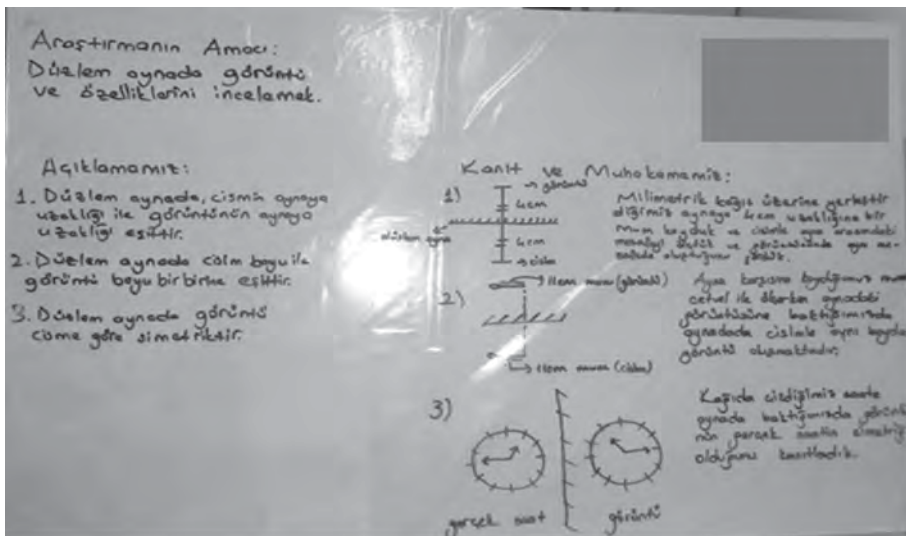 Araştırmanın Amacı:
Düzlem aynada görüntü
ve özelliklerini incelemek.
Açıklamamız:
1. Düzlem aynada, cismin aynaya
uzaklığı ile görüntünün aynaya
uzaklığı eşittir.
2. Düzlem aynada cisim boyu ile
görüntü boyu birbirine eşittir.
3. Düzlem aynada görüntü
cisme göre simetriktir.
Kanıt ve Muhakememiz:
1)
görüntü
4cm
düzlem ayna
4cm
cisim
Milimetrik kağıt üzerine yerleştir
diğimiz aynaya 4cm uzaklığına bir
mum koyduk ve cisimle ayna arasındaki
mesafeyi ölçtük ve görüntününde aynı me-
safede oluştuğunu gördük.
2)
11cm mum (görüntü)
11cm mum (cisim)
Ayna karşısına koyduğumuz mum
cetvel ile ölçerken aynadaki
görüntüsüne baktığımızda
aynadada cisimle aynı boyda
görüntü oluşmaktadır.
3)
gerçek saat
görüntü
Kağıda çizdiğimiz saate
aynada baktığımızda görüntü
nün gerçek saatin simetriği
olduğunu kanıtladık.